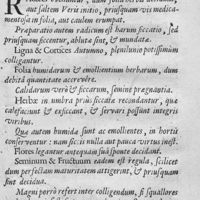 aut saltem Veris initio, priusquam vis medica-
mentosa in folia, aut caulem erumpat.
Præparatio autem radicum est harum siccatio, sed
priusquam siccentur, ablutæ sint, & mundatæ.
Ligna & Cortices Autumno, plenilunio potissimum
colliguntur.
Folia humidarum & emollientium herbarum, dum
debitâ quantitate accrevere.
Calidarum verò & siccarum, semine prægnantia.
Herbæ in umbra priùs siccatæ recondantur, quæ
calefaciunt & exsiccant, & servari possunt integris
viribus.
Quæ autem humida sunt ac emollientes, in hortis
conservantur: nam sicci nulla aut pauca virtus inest.
Flores legantur antequam suâ sponte decidant.
Seminum & Fructuum eadem est regula, scilicet
dum perfectam maturitatem attigerint, & priusquam
sint decidua.
Magni perrò refert inter colligendum, si squallores